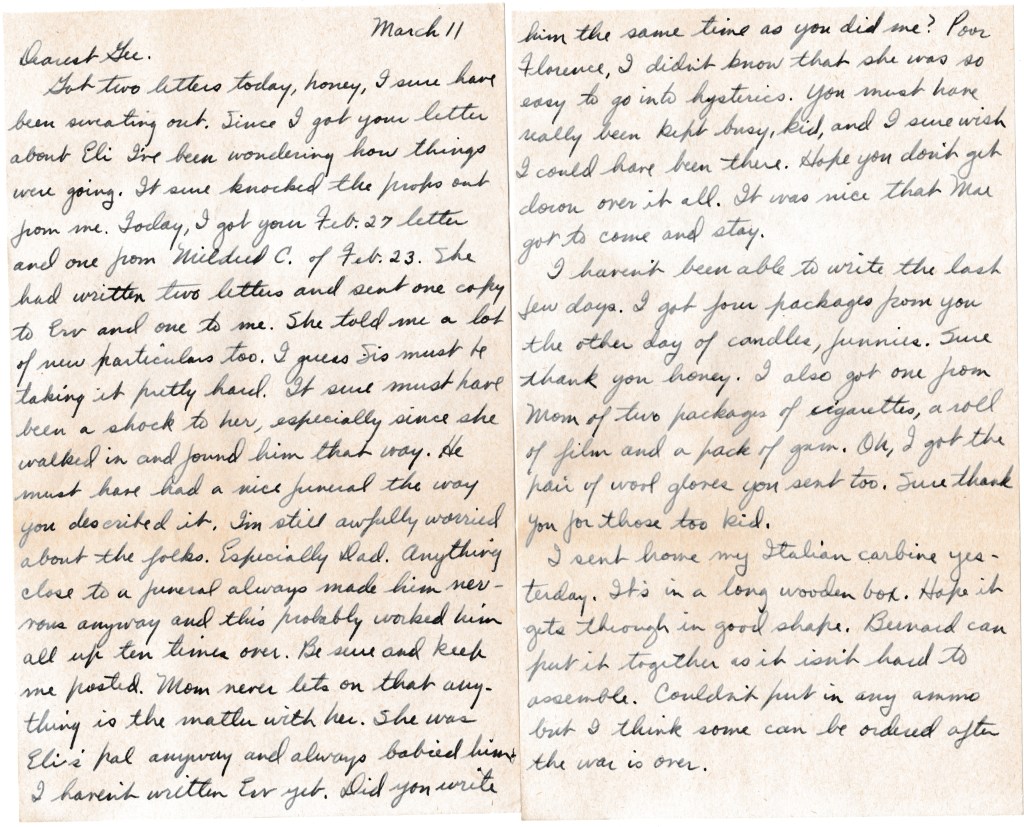 March 11
Dearest Gee.
Got two letters today, honey, I sure have
been sweating out. Since I got your letter
about Eli I've been wondering how things
were going. It sure knocked the props out
from me. Today, I got your Feb. 27 letter
and one from Mildred C. of Feb. 23. She
had written two letters and sent one copy
to Erv and one to me. She told me a lot
of new particulars too. I guess Sis must be
taking it pretty hard. It sure must have
been a shock to her, especially since she
walked in and found him that way. He
must have had a nice funeral the way
you described it. I'm still awfully worried
about the folks. Especially Dad. Anything
close to a funeral always made him ner-
vous anyway and this probably worked him
all up ten times over. Be sure and keep
me posted. Mom never lets on that any-
thing is the matter with her. She was
Eli's pal anyway and always babied him.
I haven't written Erv yet. Did you write
him the same time as you did me? Poor
Florence, I didn't know that she was so
easy to go into hysterics. You must have
really been kept busy, kid, and I sure wish
I could have been there. Hope you don't get
down over it all. It was nice that Mae
got to come and stay.
I haven't been able to write the last
few days. I got four packages from you
the other day of candles, funnies. Sure
thank you honey. I also got one from
Mom of two packages of cigarettes, a roll
of film and a pack of gum. Oh, I got the
pair of wool gloves you sent too. Sure thank
you for those too kid.
I sent home my Italian carbine yes-
terday. It's in a long wooden box. Hope it
gets through in good shape. Bernard can
put it together as it isn't hard to
assemble. Couldn't put in any ammo
but I think some can be ordered after
the war is over.